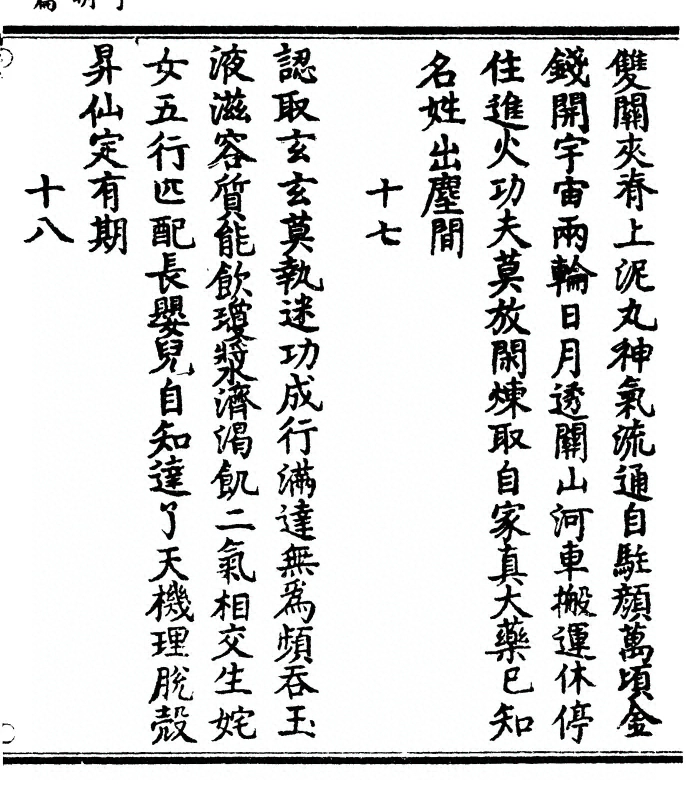 雙關夾脊上泥丸神氣流通自駐顏萬頃金
錢開宇宙兩輪日月透關山河車搬運休停
住進火功夫莫放閑煉取自家真大藥已知
名姓出塵間
十七
認取玄玄莫執迷功成行滿達無為頻吞玉
液滋容質能飲瓊漿濟渴飢二氣相交生姹
女五行匹配長嬰兒自知達了天機理脫殼
昇仙定有期
十八